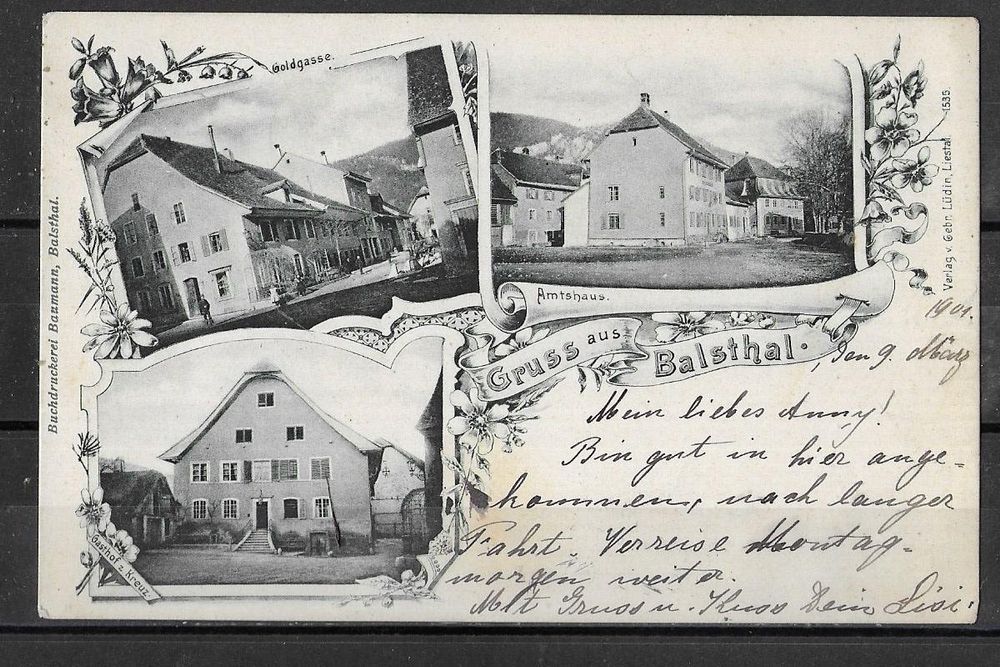 Goldgasse.
Amtshaus.
Gruss aus
Balsthal.
Gasthof z. Kreuz.
Buchdruckerei Baumann, Balsthal.
Verlag v. Gebr. Lüdin, Liestal. 1535.
1901.
den 9. März
Mein liebes Anny!
Bin gut in hier ange-
kommen, nach langer
Fahrt. Verreise Montag-
morgen weiter.
Mit Gruss u. Kuss Dein Lisi.